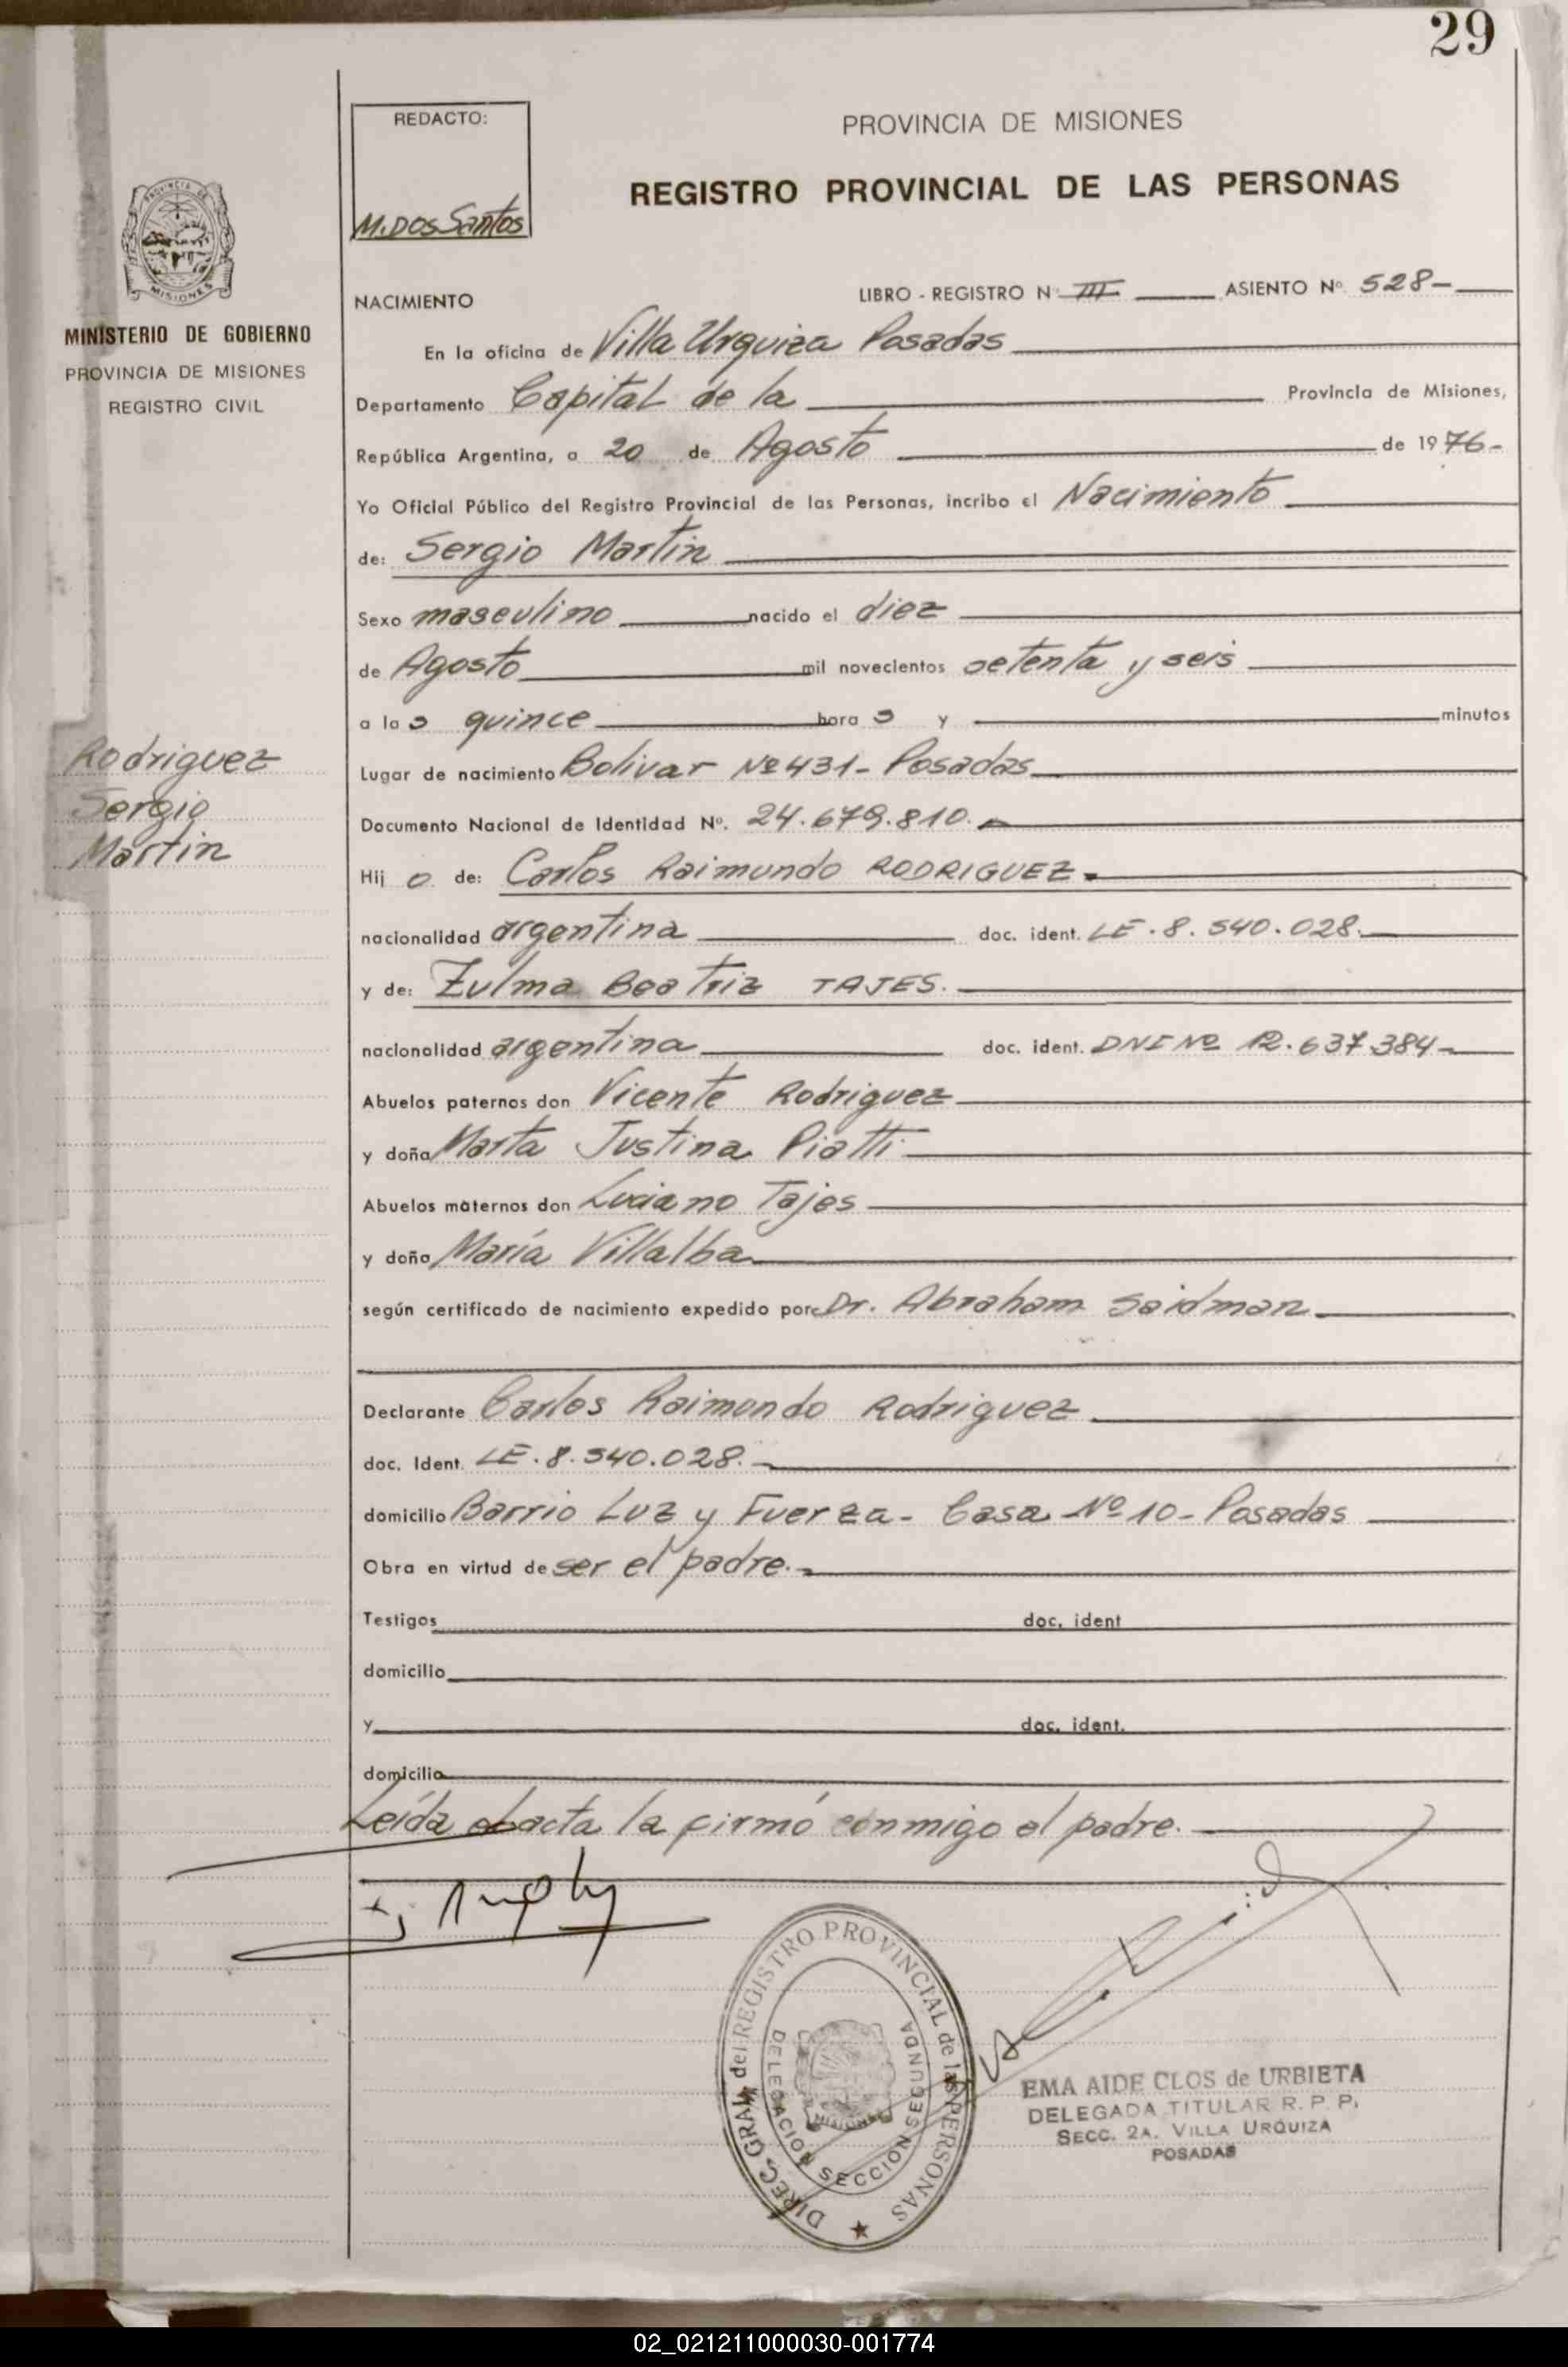 29
REDACTO:
M. DOS Santos
PROVINCIA DE MISIONES
REGISTRO PROVINCIAL DE LAS PERSONAS
PROVINCIA DE
MISIONES
MINISTERIO DE GOBIERNO
PROVINCIA DE MISIONES
REGISTRO CIVIL
NACIMIENTO
LIBRO - REGISTRO Nº III ASIENTO Nº 528-
En la oficina de Villa Urquiza Posadas
Departamento Capital de la Provincia de Misiones,
República Argentina, a 20 de Agosto de 1976-
Yo Oficial Público del Registro Provincial de las Personas, incribo el Nacimiento
de: Sergio Martin
Sexo masculino nacido el diez
de Agosto mil novecientos setenta y seis
a las quince horas y minutos
Lugar de nacimiento Bolivar Nº 431- Posadas
Documento Nacional de Identidad Nº. 24.679.810.-
Hijo de: Carlos Raimundo RODRIGUEZ-
nacionalidad argentina doc. ident. LE. 8.540.028.
y de: Zulma Beatriz TAJES.
nacionalidad argentina doc. ident. DNI Nº 12.637.384-
Abuelos paternos don Vicente Rodriguez
y doña Marta Justina Piatti
Abuelos maternos don Luciano Tajes
y doña María Villalba
según certificado de nacimiento expedido por Dr. Abraham Saidman
Declarante Carlos Raimondo Rodriguez
doc. Ident. LE. 8.540.028.-
domicilio Barrio Luz y Fuerza- Casa Nº 10- Posadas
Obra en virtud de ser el padre.-
Testigos doc. ident
domicilio
y doc. ident.
domicilio
Leída el acta la firmó conmigo el padre.
Rodriguez
Sergio
Martin
DIREC. GRAL. del REGISTRO PROVINCIAL de las PERSONAS
DELEGACION SECCION SEGUNDA
MISIONES
EMA AIDE CLOS de URBIETA
DELEGADA TITULAR R. P. P.
SECC. 2A. VILLA URQUIZA
POSADAS
02_021211000030-001774